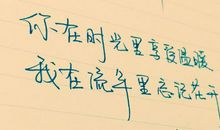 你在时光里享受温暖
我在流年里忘记花开